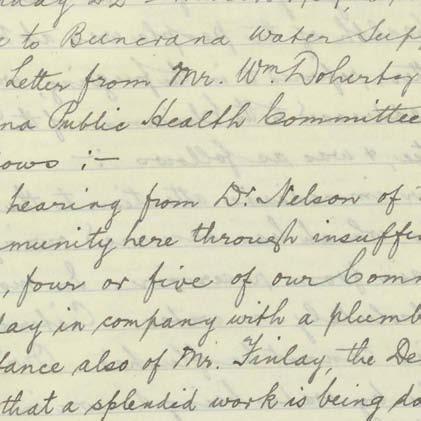 e to Buncrana Water Sup
Letter from Mr. Wm. Doherty
na Public Health Committee
ows :-
hearing from Dr. Nelson of
munity here through insuffi
, four or five of our Comm
day in company with a plumb
tance also of Mr. Finlay, the De
that a splendid work is being do